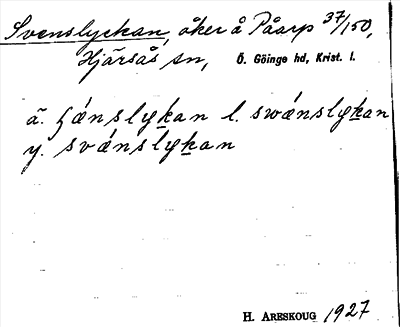 Svenslyckan, åker å Påarp 37/150,
Hjärsås sn, Ö. Göinge hd, Krist. l.
ä. swænslykan
y. svænslykan
H. ARESKOUG 1927